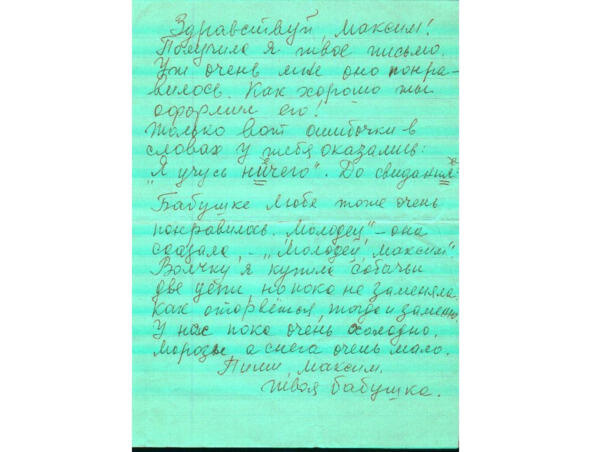 Здравствуй, Максим!
Получила я твое письмо.
Уж очень мне оно понра-
вилось. Как хорошо ты
оформил его!
Только вот ошибочки в
словах у тебя оказались:
"Я учусь ничего". До свидания.
Бабушке Любе тоже очень
понравилось. "Молодец" - она
сказала, - "Молодец, Максим".
Волчку я купила собачьи
две цепи, но пока не заменяла.
Как оторвётся, тогда и заменю.
У нас пока очень холодно,
морозы, а снега очень мало.
Пиши, Максим.
Твоя бабушка.